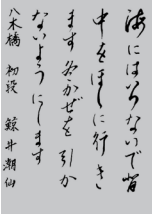 海にはいらないで皆
中をほしに行き
ます 冬かぜを引か
ないようにします
八木橋 初段 鯨井潮仙